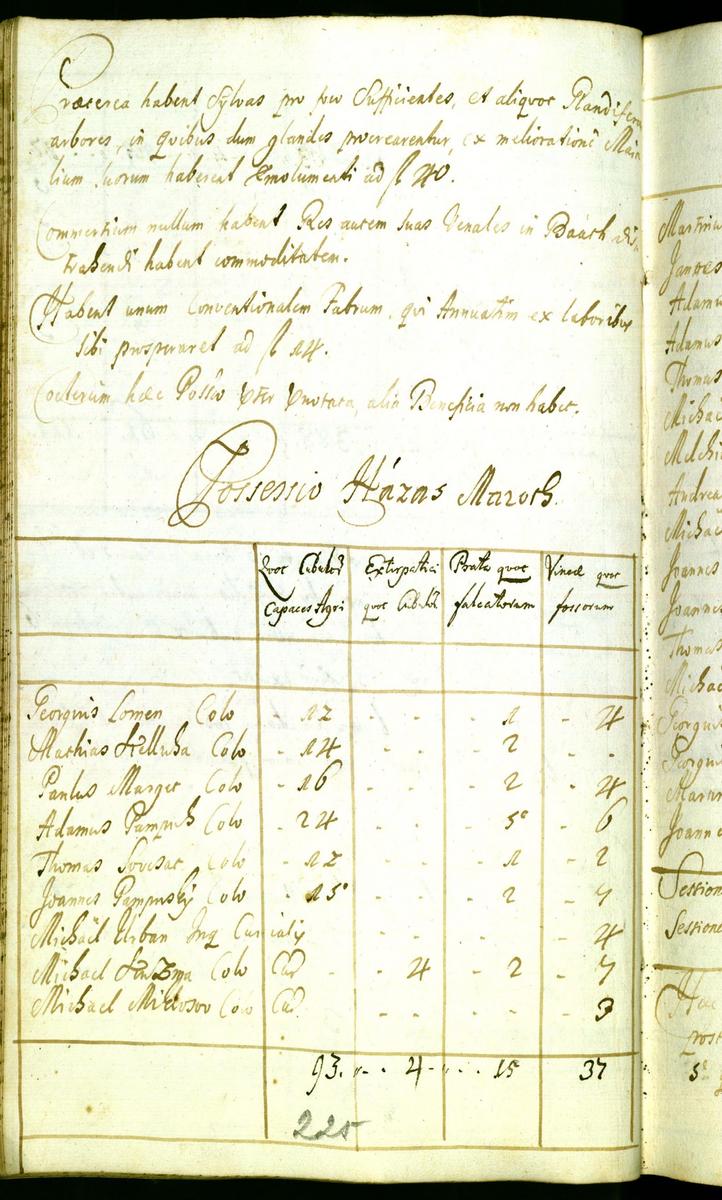 Præterea habent Sylvas pro foco Sufficientes, et aliquot Glandiferas
arbores, in quibus dum glandes procrearentur, ex melioratione
lium suorum haberent Emolumenti ad f 40.
Commertium nullum habent Res autem suas Venales in Baách
trahendi habent commoditatem.
Habent unum Conventionalem Fabrum, qui Annuatim ex laboribus
sibi prosperaret ad f 14.
Cæterum hæc Possio alia Beneficia non habet.
Possessio Házas Maroth.
Quot Cubulor Capaces Agri
Extirpatici quot Cubulor
Prata quot falcatorum
Vineæ quot fossorum
Georgius Lomen Colo - 12 - - - 1 - 4
Mathias Colo - 14 - - - 2 - -
Paulus Marget Colo - 16 - - - 2 - 4
Adamus Pampuch Colo - 24 - - - 5 - 6
Thomas Colo - 12 - - - 1 - 2
Joannes Pampusky Colo - 15 - - - 2 - 7
Michaël Urban Inq Curialis - - - 4
Michael Colo Cur - - 4 - 2 - 7
Michael Miklosov Colo Cur - - - 3
93. - 4 - 15 37
225
Martinus
Joannes
Adamus
Adamus
Thomas
Michael
Melchi
Andreas
Michael
Joannes
Joannes
Thomas
Michael
Georgius
Georgius
Martin
Joannes
Session
Session